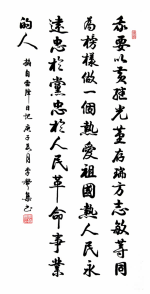 我要以黄繼光董存瑞方志敏等同
為榜樣做一個熱愛祖國熱愛人民永
遠忠於黨忠於人民革命事業
的人
摘自雷鋒日記庚子